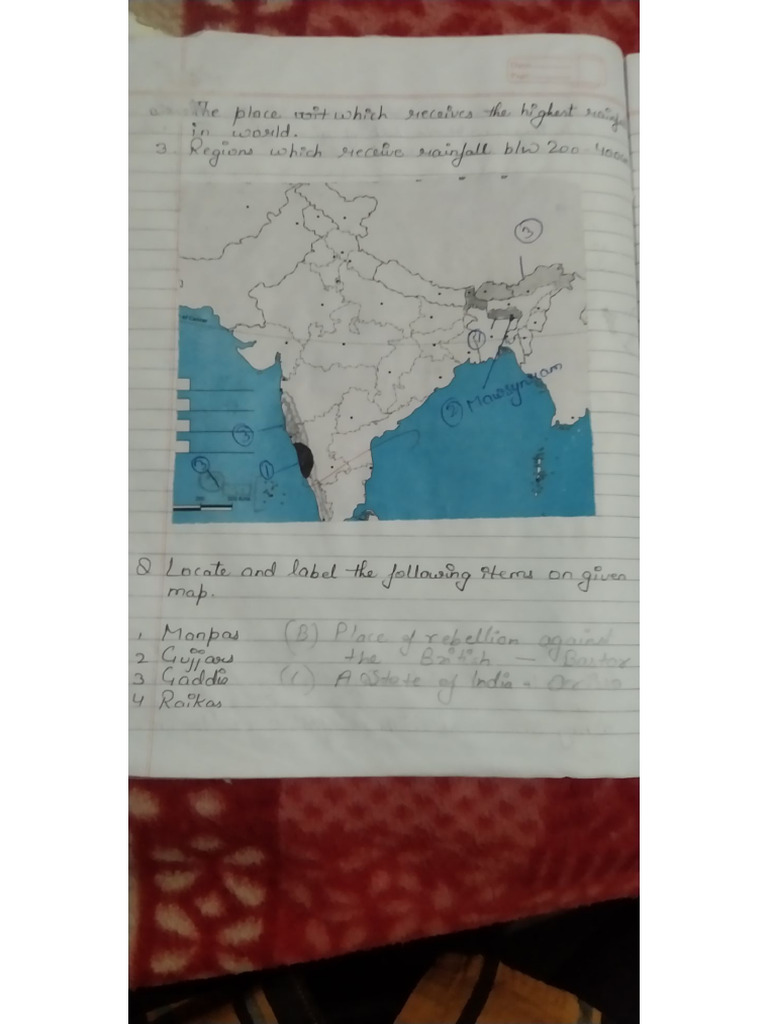 The place wit which receives the highest
in world.
3. Regions which receive rainfall b/w 200
3
1
2 Mawsynram
3
1
Q Locate and label the following items on given
map.
1 Monpas (B) Place of rebellion against
2 Gujjars the British — Bastar
3 Gaddis (C) A State of India -
4 Raikas